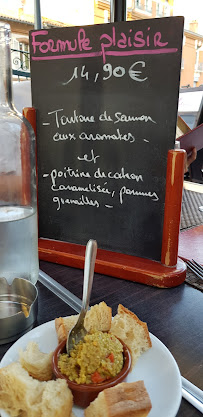 Formule plaisir
14,90€
- Tartare de saumon
aux aromates -
et
- poitrine de cochon
caramélisée, pommes
grenailles -